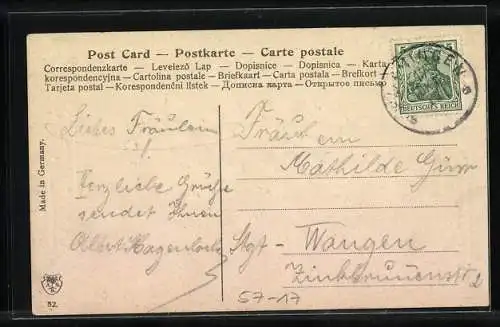 Post Card — Postkarte — Carte postale
Correspondenzkarte — Levelező Lap — Dopisnice — Dopisnica — Karta
korespondencyjna — Cartolina postale — Briefkaart — Carta postala — Brefkort —
Tarjeta postal — Korespondenční lístek — Дописна карта — Открытое письмо
DEUTSCHES REICH
Made in Germany.
Liebes Fräulein
Herzliche Grüße
sendet Ihnen
Albert Hagenloch
Fräulein
Mathilde
Stgt - Wangen
2
57-17
52.